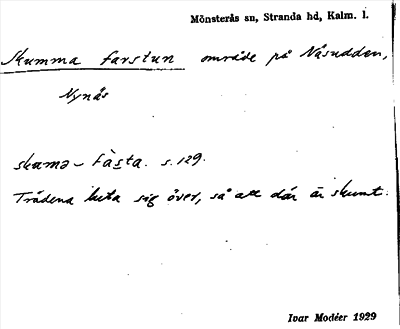 Mönsterås sn, Stranda hd, Kalm. l.
Skumma farstun område på Nåsudden,
Nynås
skumə – fàsta. s. 129.
Trädena luta sig över, så att där är skumt.
Ivar Modéer 1929